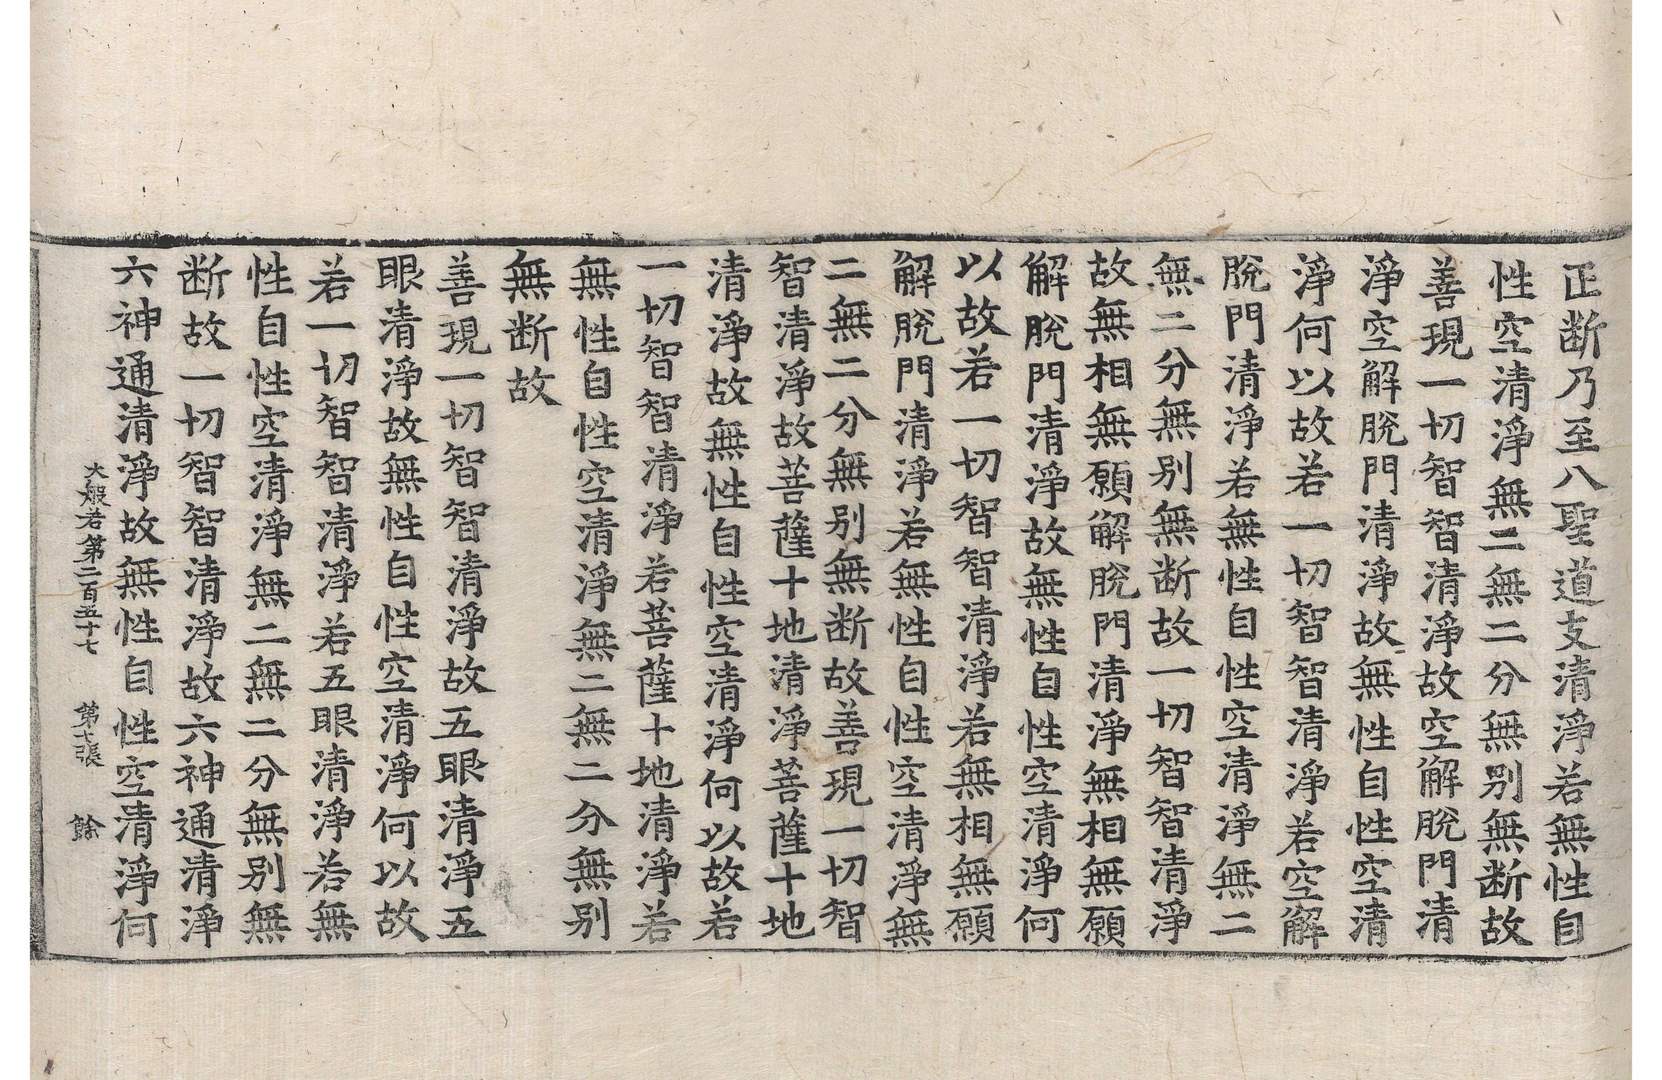 正断乃至八聖道支清淨若無性自
性空清淨無二無二分無別無断故
善現一切智智清淨故空解脫門清
淨空解脫門清淨故無性自性空清
淨何以故若一切智智清淨若空解
脫門清淨若無性自性空清淨無二
無二分無別無断故一切智智清淨
故無相無願解脫門清淨無相無願
解脫門清淨故無性自性空清淨何
以故若一切智智清淨若無相無願
解脫門清淨若無性自性空清淨無
二無二分無別無断故善現一切智
智清淨故菩薩十地清淨菩薩十地
清淨故無性自性空清淨何以故若
一切智智清淨若菩薩十地清淨若
無性自性空清淨無二無二分無別
無断故
善現一切智智清淨故五眼清淨五
眼清淨故無性自性空清淨何以故
若一切智智清淨若五眼清淨若無
性自性空清淨無二無二分無別無
断故一切智智清淨故六神通清淨
六神通清淨故無性自性空清淨何
大般若第二百五十七 第七張 餘